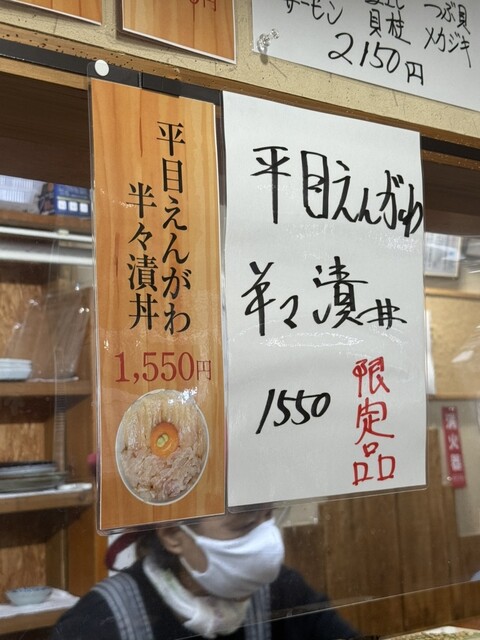 サーモン
貝柱
つぶ貝
メカジキ
2150円
円
平目えんがわ
半々漬丼
1,550円
平目えんがわ
半々漬丼
1550
限定品
消火器